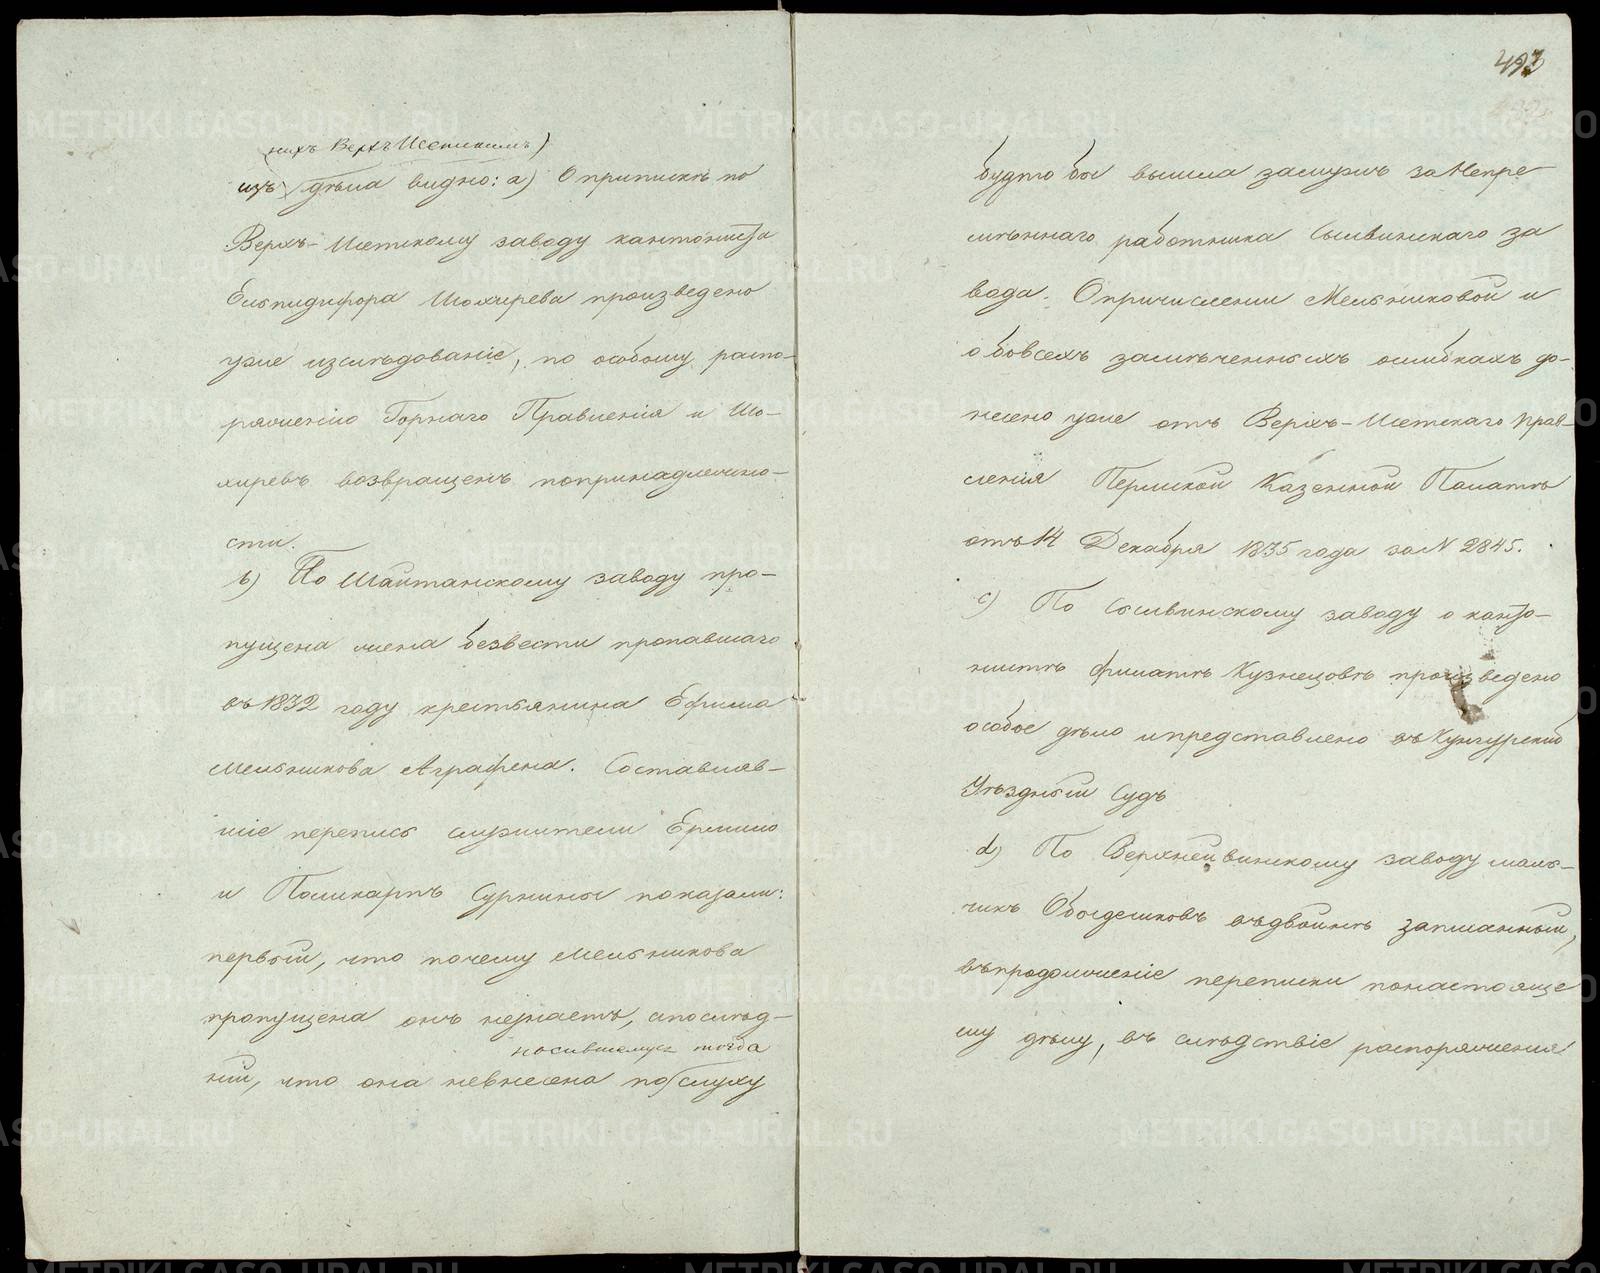 нихъ Верхъ Исетскимъ)
изъ дѣла видно: а) О припискѣ по
Верхъ-Исетскому заводу кантониста
Ельпидифора Шохирева произведено
уже изслѣдованіе, по особому распо-
ряженію Горнаго Правленія и Шо-
хиревъ возвращенъ попринадлежно-
сти.
b) По Шайтанскому заводу про-
пущена жена безвести пропавшаго
въ 1832 году крестьянина Ефима
Мельникова Аграфена. Составляв-
шіе перепись служители Ермило
и Поликарпъ Сурнины показали:
первый, что почему Мельникова
пропущена онъ незнаетъ, апослѣд-
носившемуся тогда
ній, что она невнесена по слуху
493
будто бы вышла замужъ за Непре-
мѣннаго работника Сылвинскаго за
вода. Опричисленіи Мельниковой и
обовсехъ замѣченныхъ ошибкахъ до-
несено уже отъ Верхъ-Исетскаго Прав-
ленія Пермской Казенной Палатѣ
отъ 14 Декабря 1835 года за N 2845.
c) По Сылвинскому заводу о канто-
нистѣ Филатѣ Кузнецовѣ произведено
особое дѣло ипредставлено въ Кунгурской
Уѣздный Судъ
d) По Верхнейвинскому заводу маль-
чикъ Обогдешковъ вдвойнѣ записанный,
въпродолженіе переписки понастояще
му дѣлу, въ слѣдствіе распоряженія
METRIKI.GASO-URAL.RU